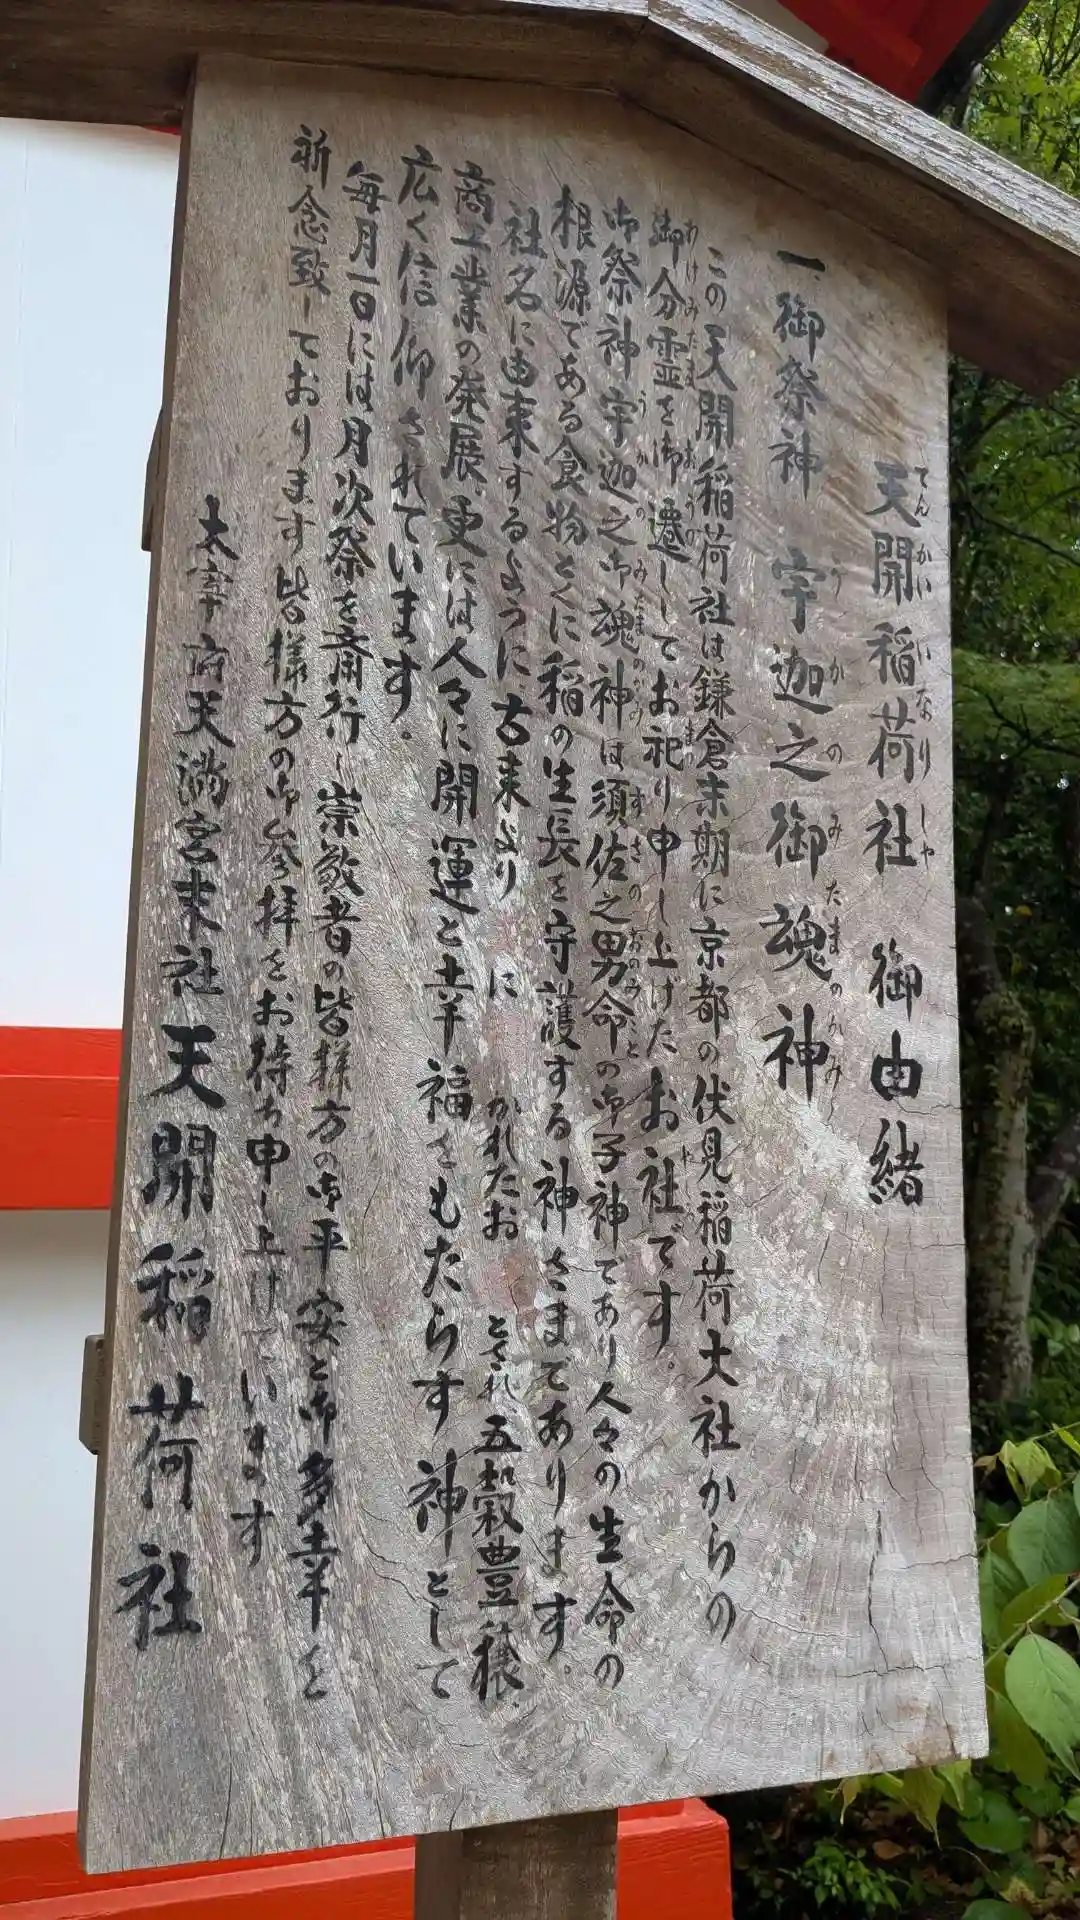 天開稲荷社 御由緒
一、御祭神 宇迦之御魂神
この天開稲荷社は鎌倉末期に京都の伏見稲荷大社からの
御分霊を御遷ししてお祀り申し上げたお社です。
御祭神宇迦之御魂神は須佐之男命の御子神であり人々の生命の
根源である食物とくに稲の生長を守護する神さまであります。
社名に由来するように、古来より に かれたお とされ、五穀豊穣、
商工業の発展、更には人々に開運と幸福をもたらす神として
広く信仰されています。
毎月一日には月次祭を斎行し崇敬者の皆様方の御平安と御多幸を
祈念致しております皆様方の御参拝をお待ち申し上げています
太宰府天満宮末社天開稲荷社